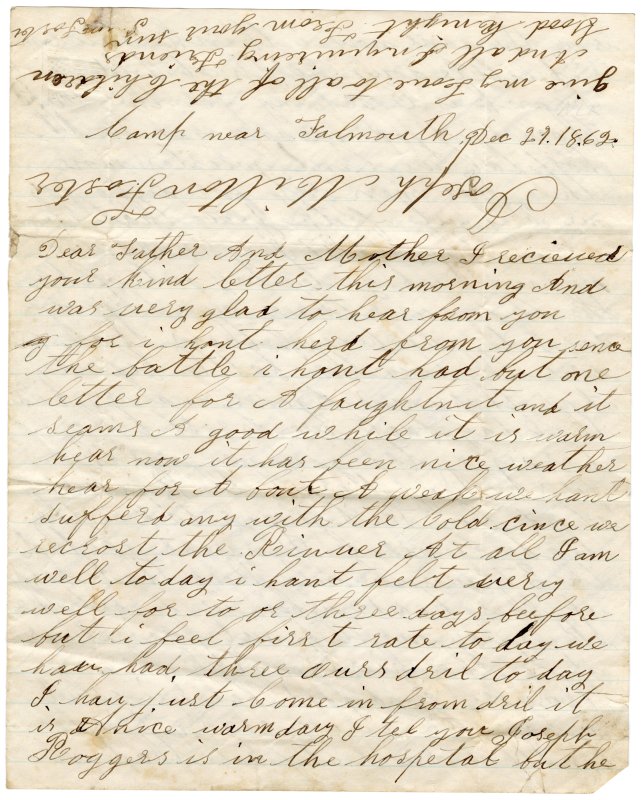 Camp near Falmouth Dec 29. 1862.
Dear Father And Mother I recieued
your kind letter this morning And
was very glad to hear from you
for i hant herd from you senc
the battle i hant had but one
letter for A faughtnit and it
seams A good while it is warm
hear now it has been nice weather
hear for A bout A weak we hant
sufferd any with the Cold cince we
recrost the Rivuer At all I am
well to day i hant felt very
well for to or three days beefore
but i feel first rate to day we
hau had three ours dril to day
I hau just Come in from dril it
is A nice warm day I tel you Joseph
Roggers is in the hospetal but he
give my Love to all of the Children
And all Inquireing Friends
Good by to night From your sun
Joseph Milton Foster